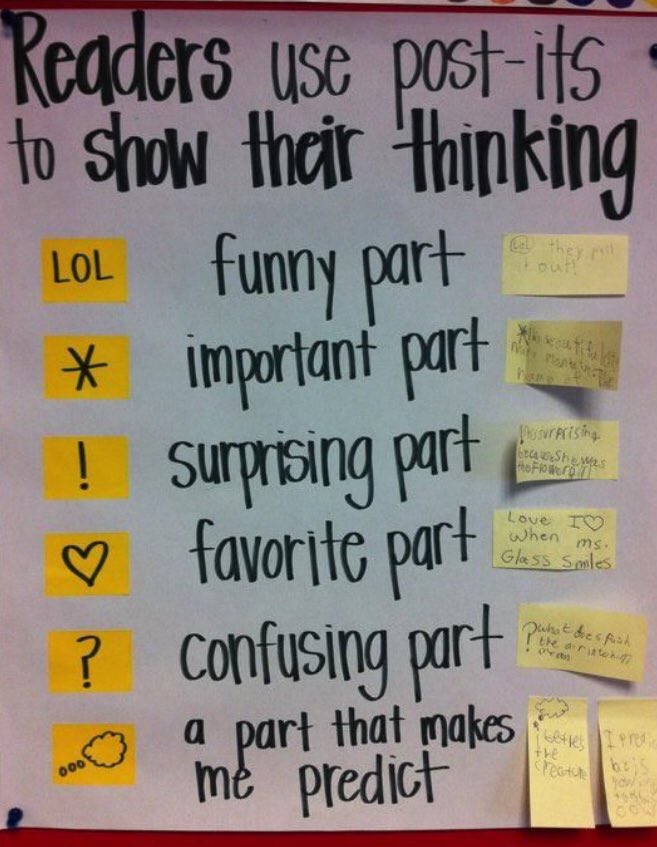 Readers use post-its
to show their thinking
LOL funny part
LOL they pull
it out!
* important part
*
! surprising part
surprising
because she was
the flower
♡ favorite part
Love I ♡
when ms.
Glass smiles
? confusing part
? what does push
the
mean
a part that makes
me predict
the
creature
I